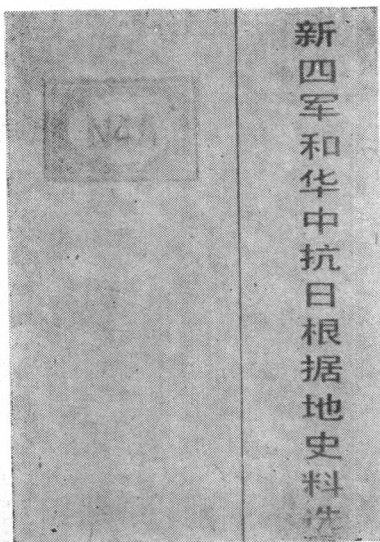 新四军和华中抗日根据地史料选
N4A